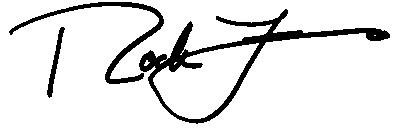 Rock J